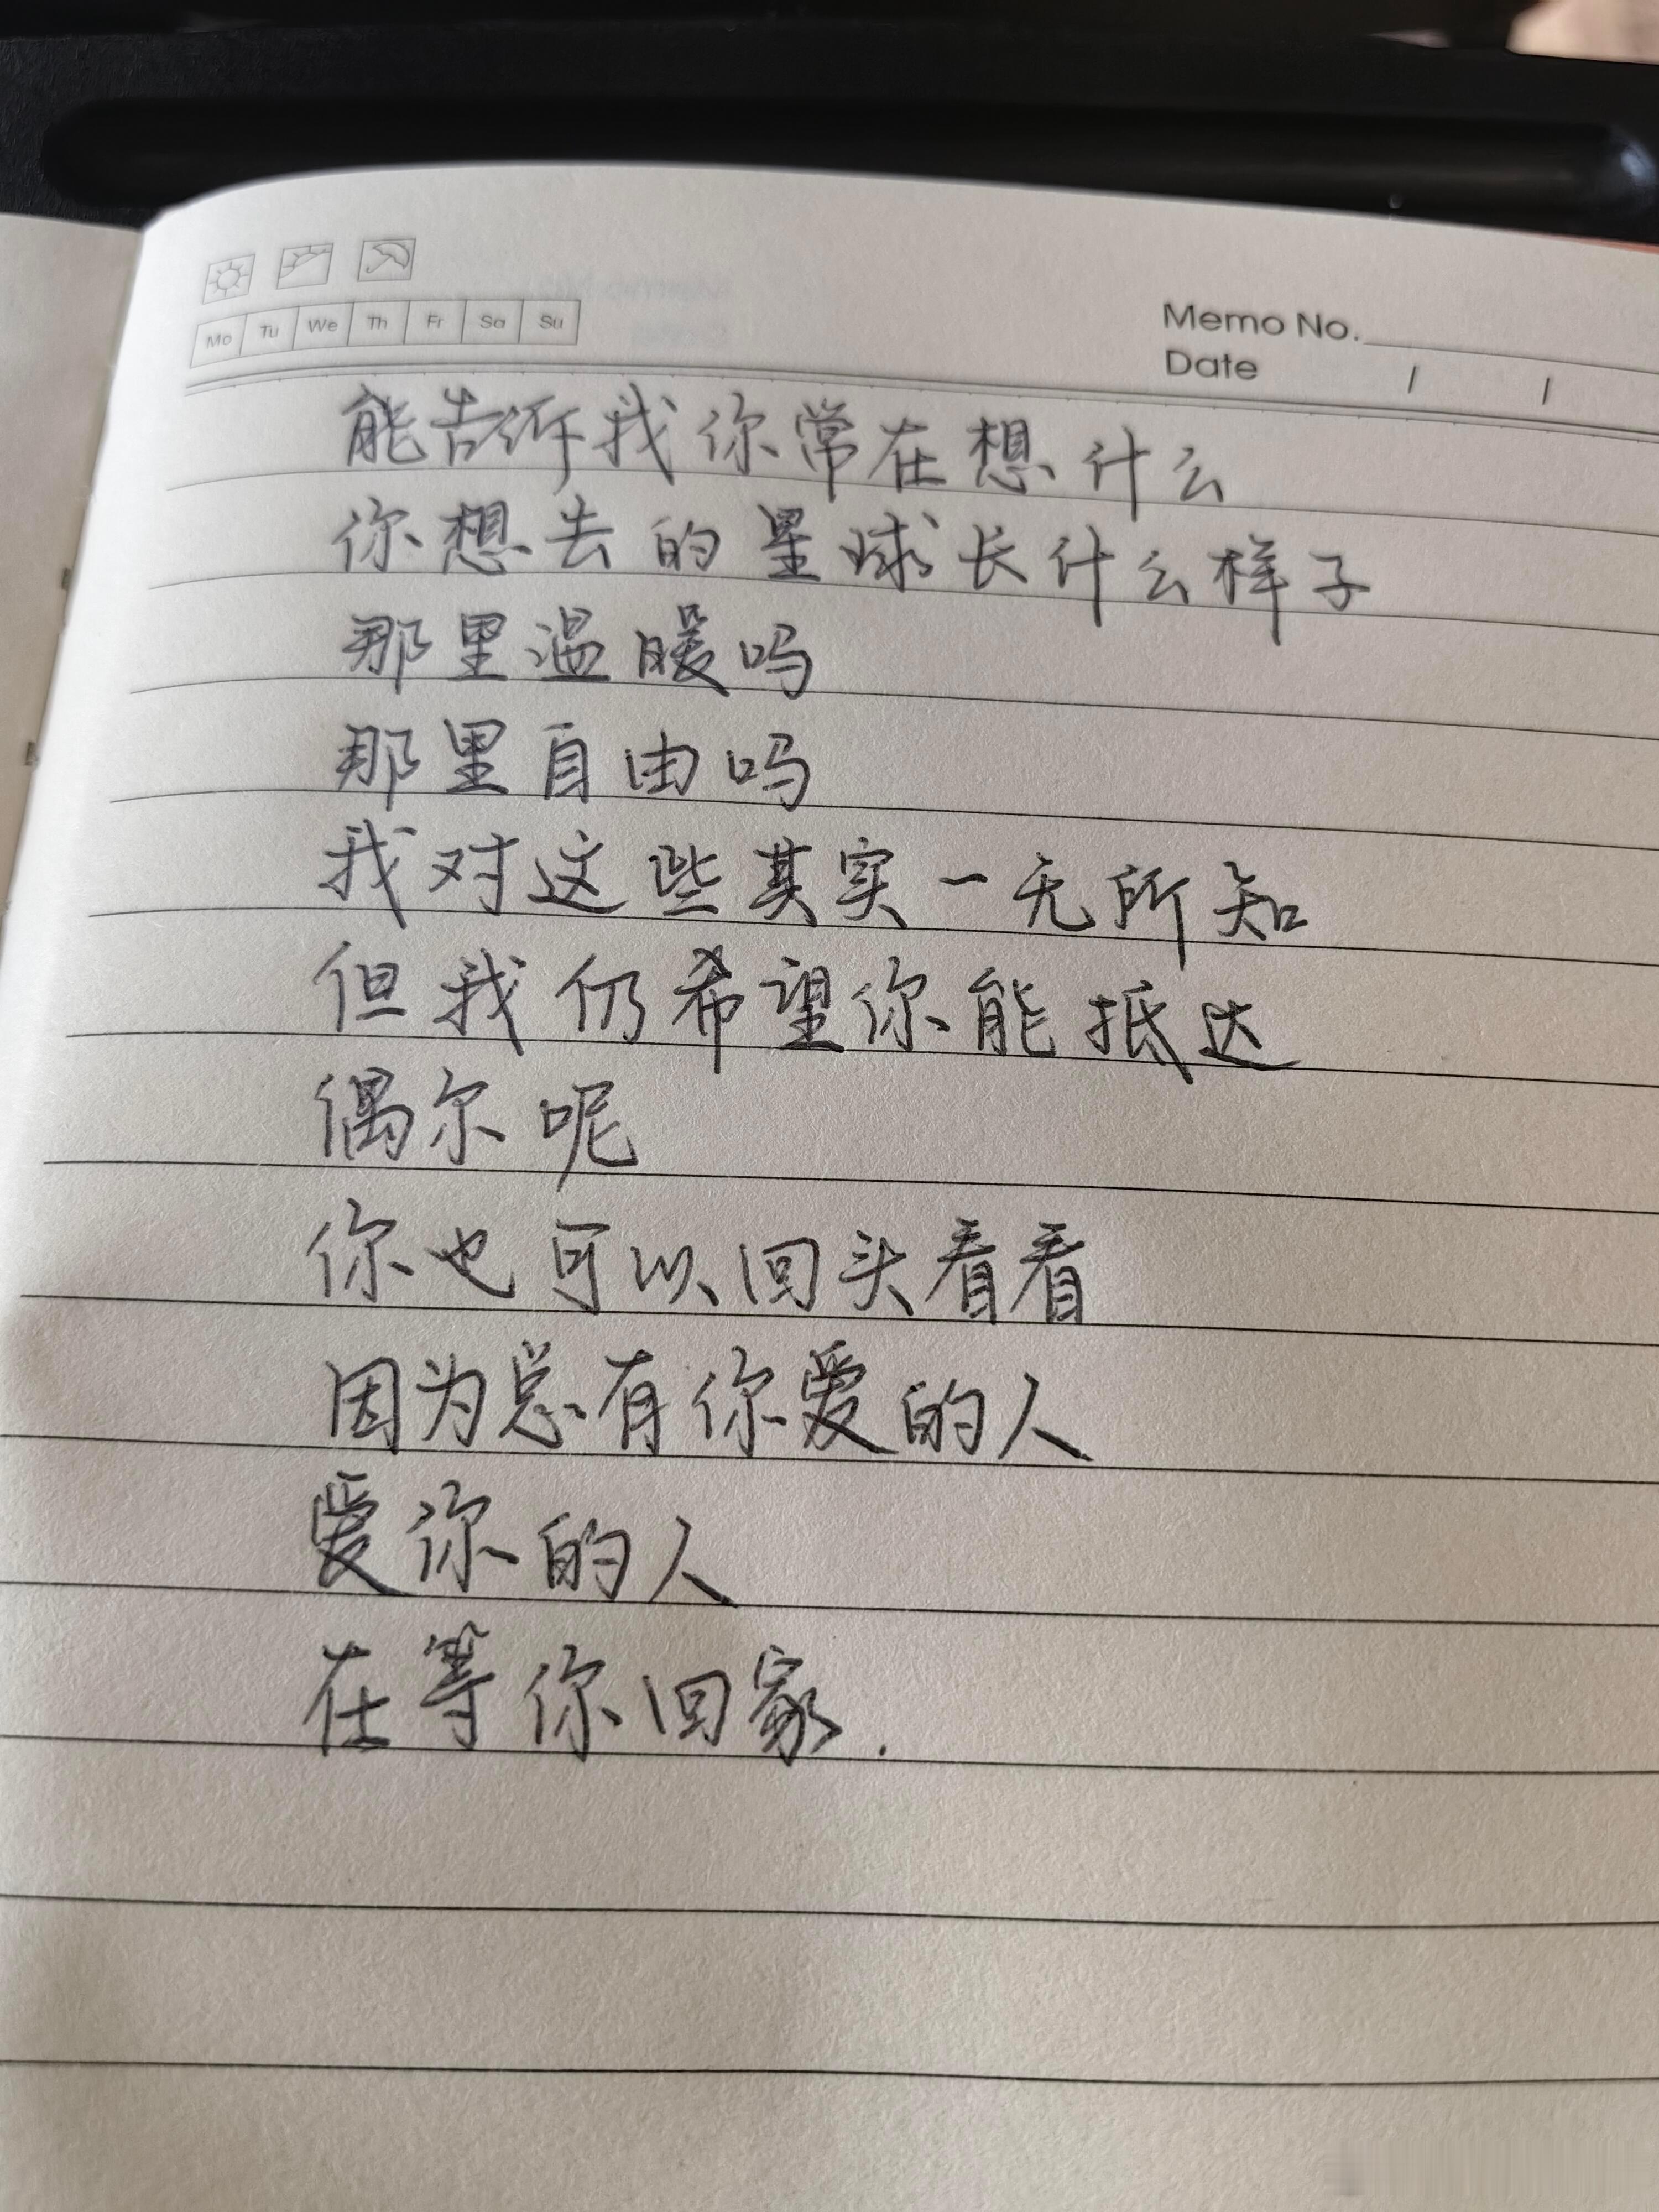 Mo Tu We Th Fr Sa Su
Memo No.
Date / /
能告诉我你常在想什么
你想去的星球长什么样子
那里温暖吗
那里自由吗
我对这些其实一无所知
但我仍希望你能抵达
偶尔呢
你也可以回头看看
因为总有你爱的人
爱你的人
在等你回家.